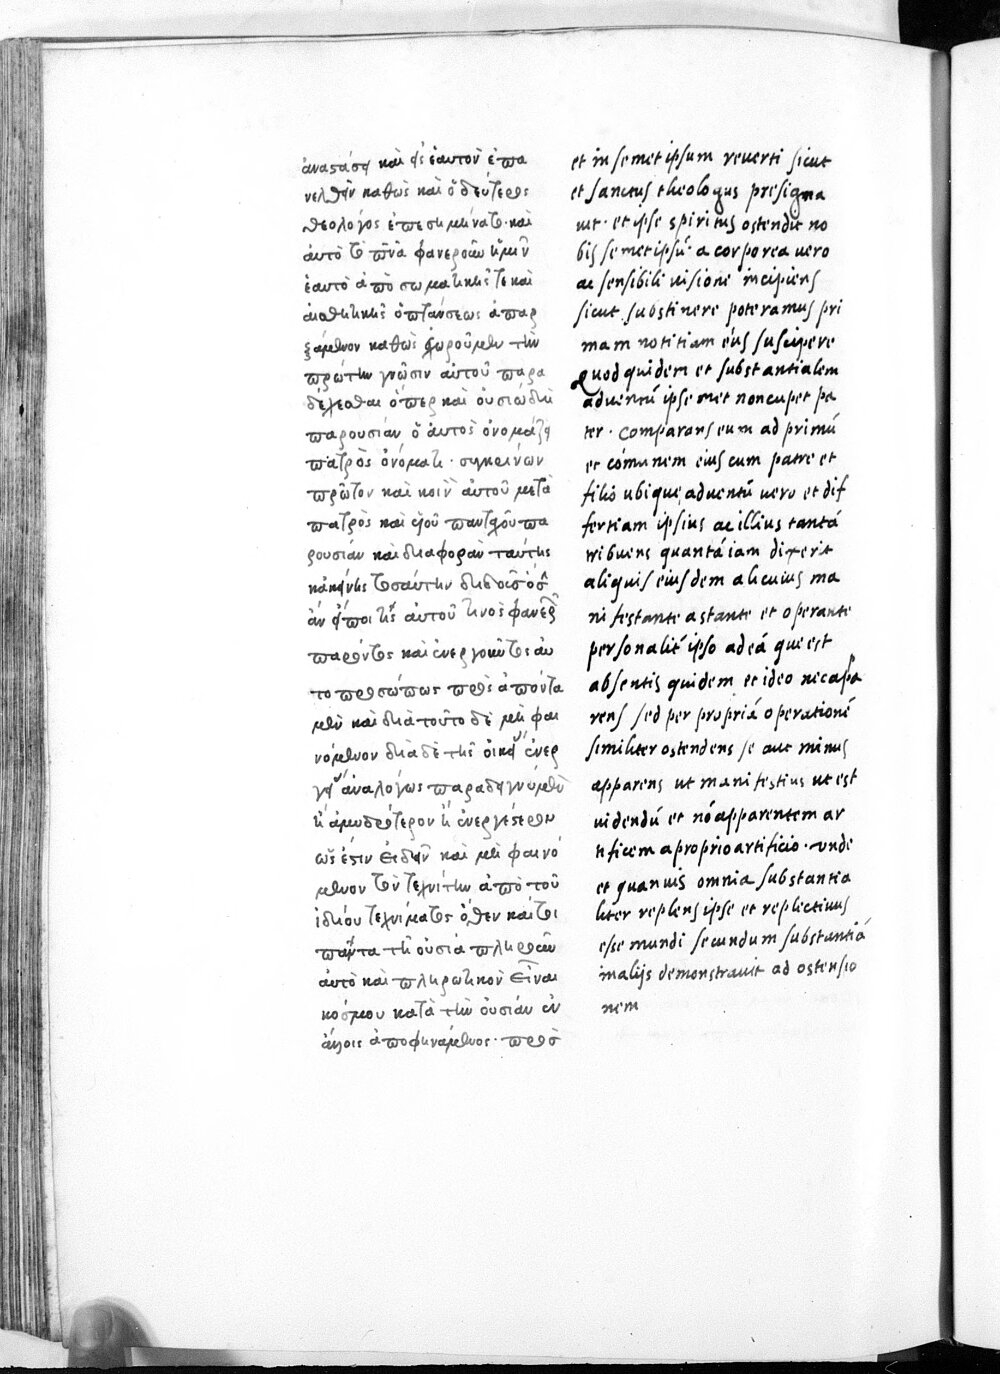 ἀναστάσει καὶ εἰς ἑαυτὸν ἐπα
νελθεῖν καθὼς καὶ ὁ δεύτερος
θεολόγος ἐπεσημήνατο· καὶ
αὐτὸ τὸ πνα φανεροῦν ἡμῖν
ἑαυτὸ ἀπὸ σωματικῆς τε καὶ
αἰσθητικῆς ὀπτάνσεως ἀπαρ
ξάμενον καθὼς ἐχωροῦμεν τὴν
πρώτην γνῶσιν αὐτοῦ παρα
δέχεσθαι ὅπερ καὶ οὐσιώδη
παρουσίαν ὁ αὐτὸς ὀνομάζει
πατρὸς ὀνόματι· συγκρίνων
πρῶτον καὶ κοινὴν αὐτοῦ μετὰ
πατρὸς καὶ υἱοῦ πανταχοῦ πα
ρουσίαν καὶ διαφορὰν ταύτης
κἀκείνης τοσαύτην
ἂν εἴποι τῆς αὐτοῦ τινος
παρόντος καὶ ἐνεργοῦντος αὐ
τοπροσώπως πρὸς ἀπόντα
μὲν καὶ διὰ τοῦτο δὲ μὴ φαι
νόμενον διὰ δὲ τῆς οἰκείας ἐνερ
γείας ἀναλόγως παραδεικνύμενον
ἢ ἀμυδρότερον ἢ ἐνεργέστερον
ὥς ἐστιν ἰδεῖν καὶ μὴ φαινό
μενον τὸν τεχνίτην ἀπὸ τοῦ
ἰδίου τεχνίματος ὅθεν καὶ τοι
πάντα τῇ οὐσίᾳ πληροῦν
αὐτὸ καὶ πληρωτικὸν εἶναι
κόσμου κατὰ τὴν οὐσίαν ἐν
ἄλλοις ἀποφηνάμενος· πρὸς
et in semet ipsum reuerti sicut
et sanctus theologus presigna
uit· et ipse spiritus ostendit no
bis semetipsū· a corporea uero
ac sensibili uisione incipiens
sicut substinere poteramus pri
mam notitiam eius suscipere
Quod quidem et substantialem
aduentū ipse met noncupet pa
ter· comparans eum ad primū
et cōmunem eius cum patre et
filio ubique aduentū uero et dif
fertiam ipsius ac illius tantā
tribuens quantā iam dixerit
aliquis eiusdem alicuius ma
nifestante astante et operante
personalit̄ ipso ad eā que est
absentis quidem et ideo nec apa
rens sed per propriā operationē
similiter ostendens se aut minus
apparens ut manifestius ut est
uidendū et nō apparentem ar
tificem a proprio artificio· unde
et quanuis omnia substantia
liter replens ipse et replectiuus
esse mundi secundum substantiā
in alijs demonstrauit ad ostensio
nem